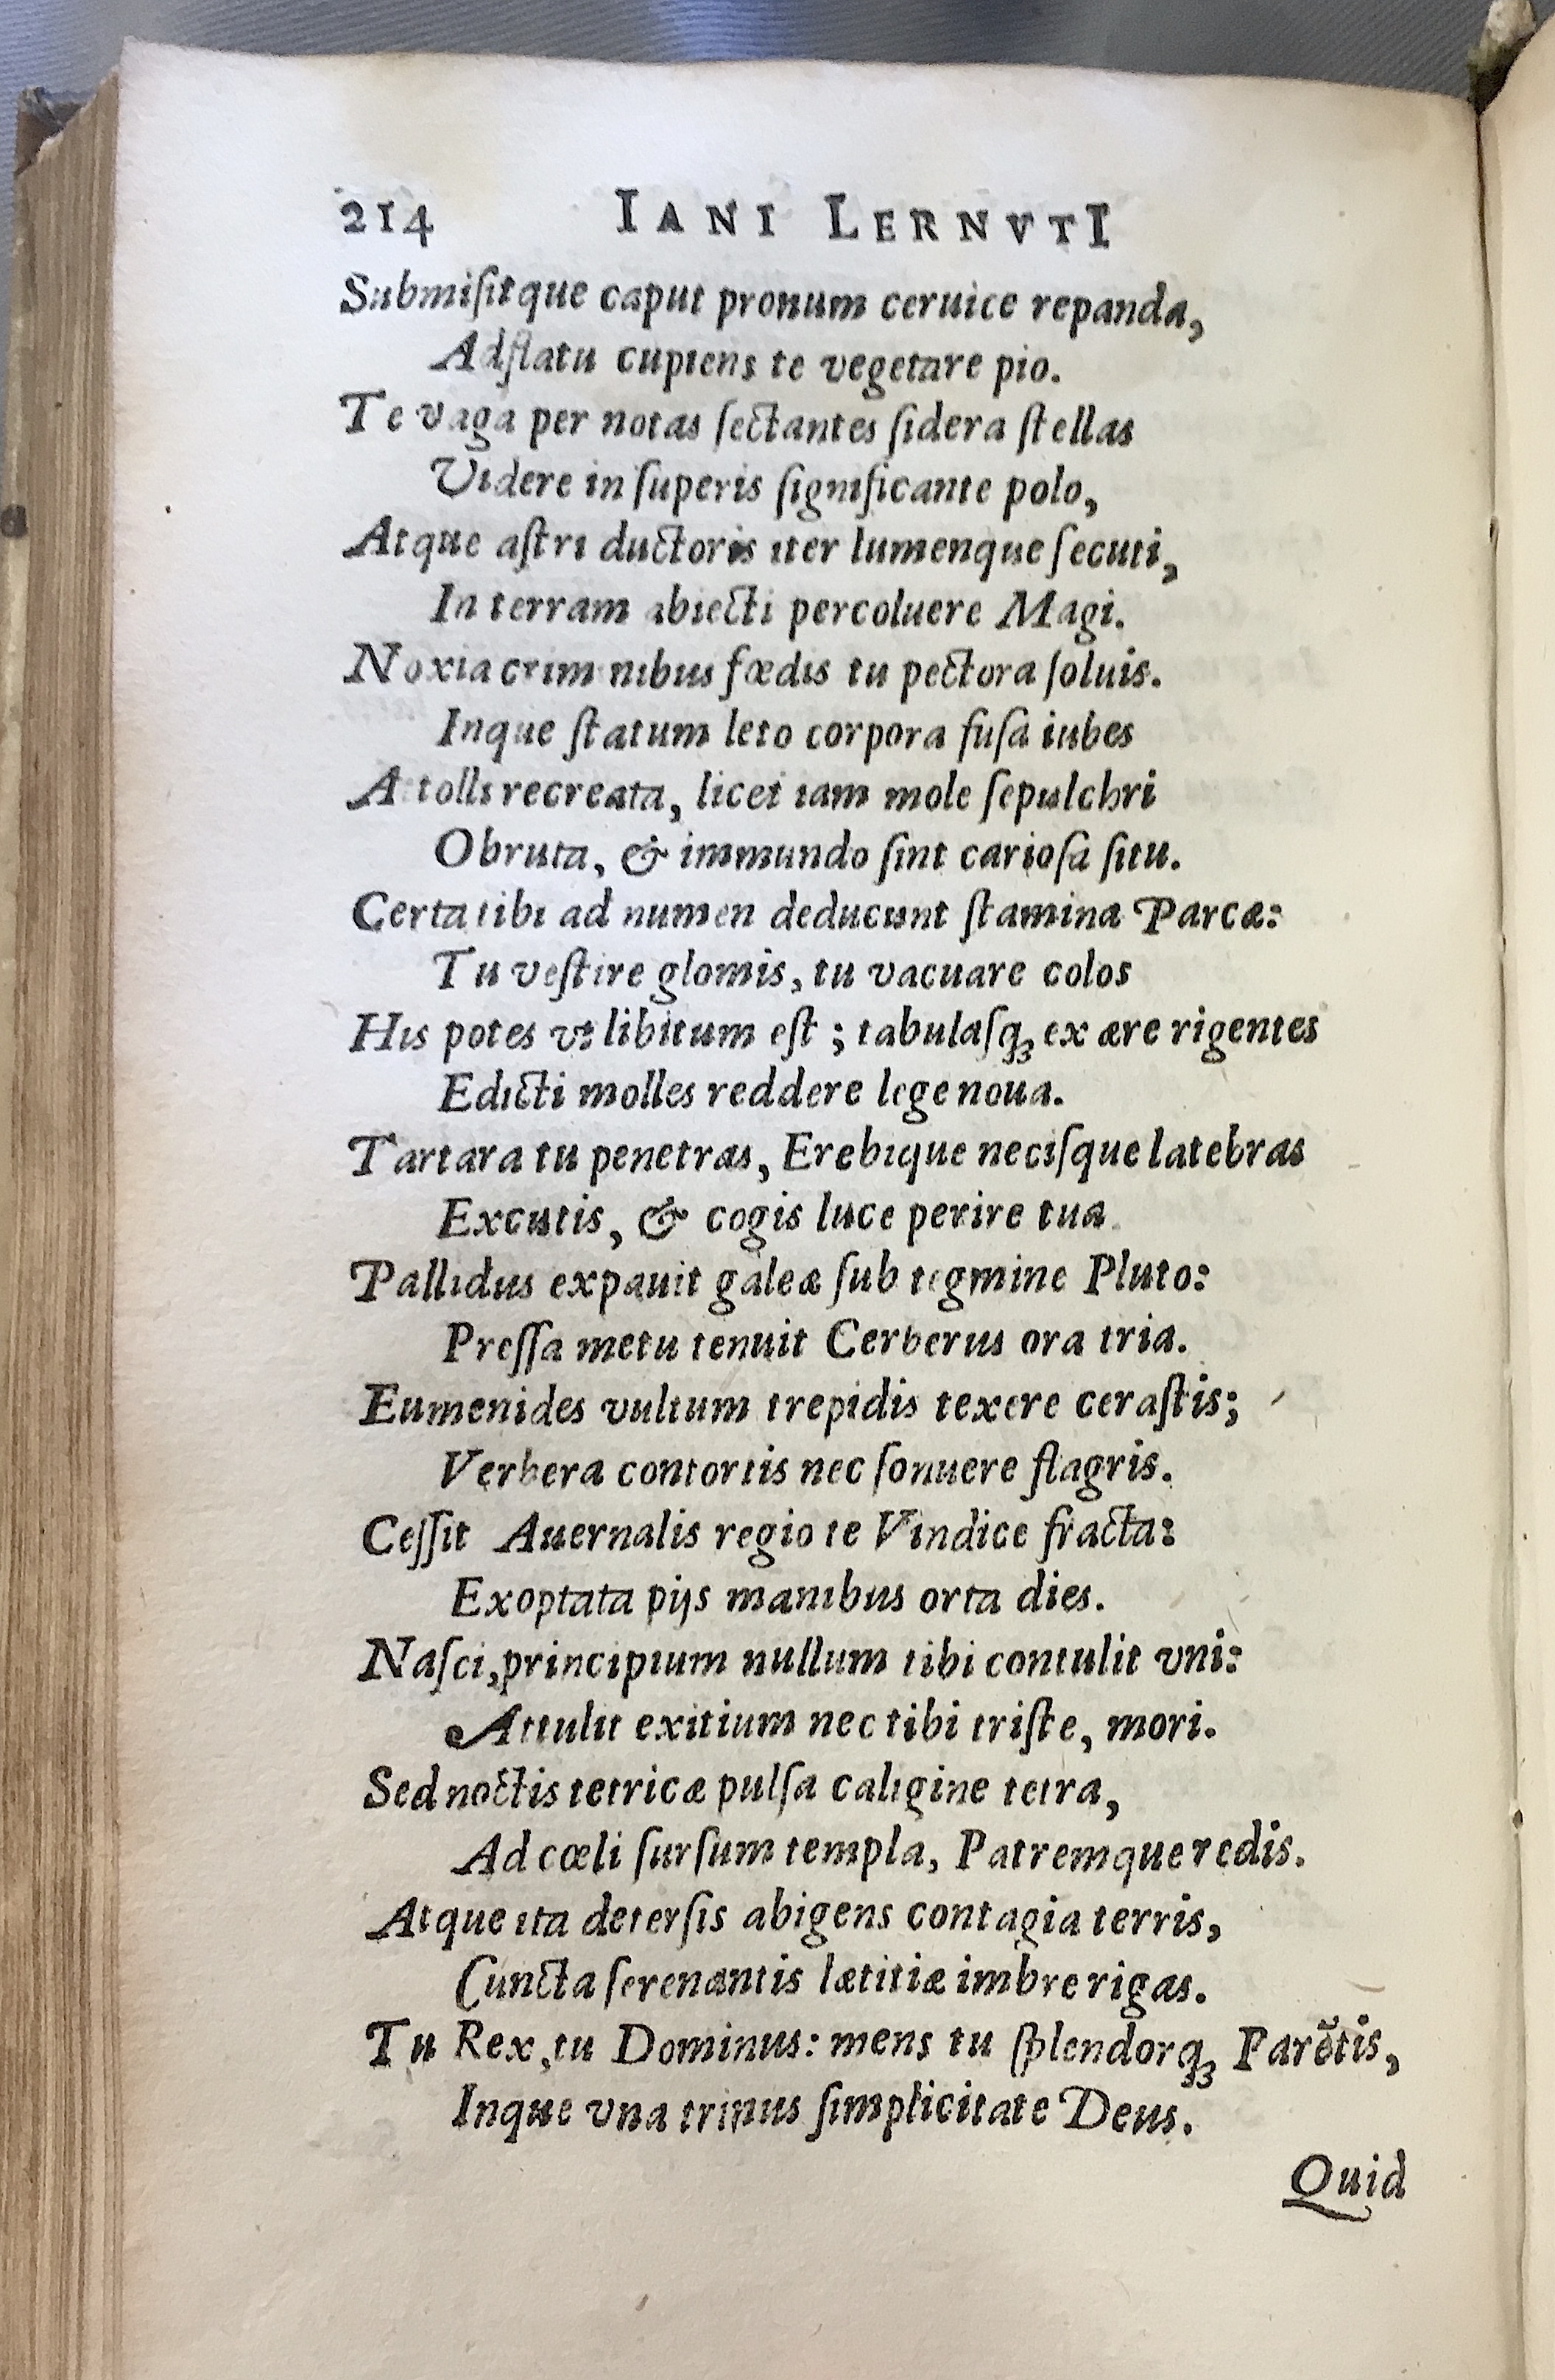 214 IANI LERNVTI
Submiſitque caput pronum ceruice repanda,
Adflatu cupiens te vegetare pio.
Te vaga per notas ſectantes ſidera ſtellas
Videre in ſuperis ſignificante polo,
Atque aſtri ductoris iter lumenque ſecuti,
In terram abiecti percoluere Magi.
Noxia criminibus fœdis tu pectora ſoluis.
Inque ſtatum leto corpora fuſa iubes
Attolli recreata, licet iam mole ſepulchri
Obruta, & immundo ſint carioſa ſitu.
Certa tibi ad numen deducunt ſtamina Parcæ:
Tu veſtire glomis, tu vacuare colos
His potes vt libitum eſt; tabulaſq; ex ære rigentes
Edicti molles reddere lege noua.
Tartara tu penetras, Erebique neciſque latebras
Excutis, & cogis luce perire tua.
Pallidus expauit galeæ ſub tegmine Pluto:
Preſſa metu tenuit Cerberus ora tria.
Eumenides vultum trepidis texere ceraſtis;
Verbera contortis nec ſonuere flagris.
Ceſſit Auernalis regio te Vindice fracta:
Exoptata pijs manibus orta dies.
Naſci, principium nullum tibi contulit vni:
Attulit exitium nec tibi triſte, mori.
Sed noctis tetricæ pulſa caligine tetra,
Ad cœli ſurſum templa, Patremque redis.
Atque ita deterſis abigens contagia terris,
Cuncta ſerenantis lætitiæ imbre rigas.
Tu Rex, tu Dominus: mens tu ſplendorq; Parẽtis,
Inque vna trinus ſimplicitate Deus.
Quid